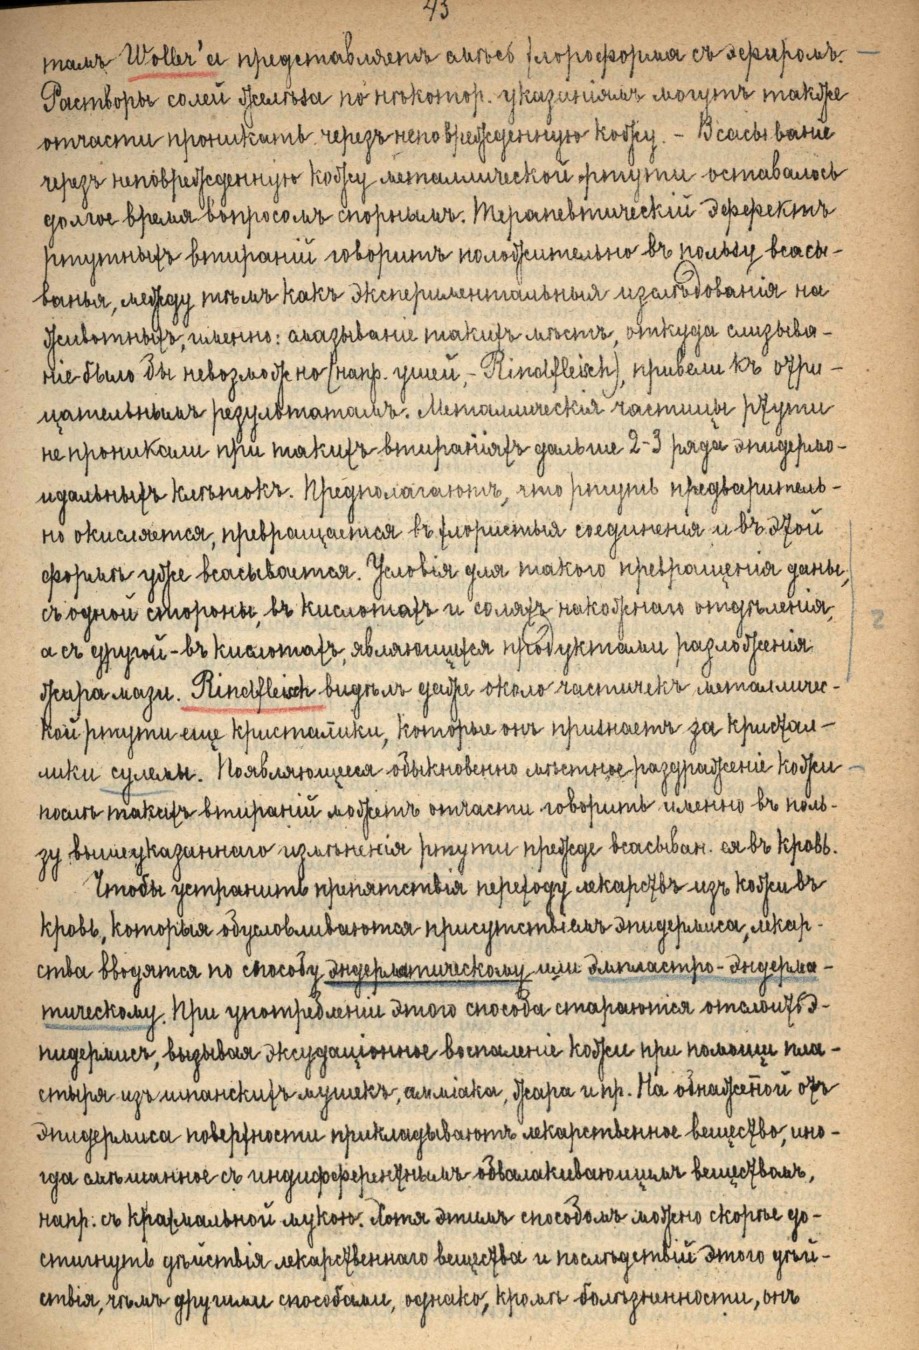 43
тамъ Woller'а представляетъ смѣсь хлороформа съ эфиромъ.
Растворы солей желѣза по нѣкотор. указаніямъ могутъ также
отчасти проникать черезъ неповрежденную кожу. – Всасываніе
черезъ неповрежденную кожу металлической ртути оставалось
долгое время вопросомъ спорнымъ. Терапевтическій эффектъ
ртутныхъ втираній говоритъ положительно въ пользу всасы-
ванья, между тѣмъ какъ экспериментальныя изслѣдованія на
животныхъ, именно: смазываніе такихъ мѣстъ, откуда слизыва-
ніе было бы невозможно (напр. ушей, – Rindfleisch), привели къ отри-
цательнымъ результатамъ. Металлическія частицы ртути
не проникали при такихъ втираніяхъ дальше 2-3 ряда эпидермо-
идальныхъ клѣтокъ. Предполагаютъ, что ртуть предваритель-
но окисляется, превращается въ хлористыя соединенія и въ этой
формѣ уже всасывается. Условія для такого превращенія даны,
съ одной стороны, въ кислотахъ и соляхъ накожнаго отдѣленія,
а съ другой – въ кислотахъ, являющихся продуктами разложенія
жира мази. Rindfleisch видѣлъ даже около частичекъ металличес-
кой ртути еще кристалики, которые онъ признаетъ за кристал-
лики сулемы. Появляющееся обыкновенно мѣстное раздраженіе кожи
послѣ такихъ втираній можетъ отчасти говорить именно въ поль-
зу вышеуказаннаго измѣненія ртути прежде всасыван. ея въ кровь.
Чтобы устранить препятствія переходу лекарствъ изъ кожи въ
кровь, которыя обусловливаются присутствіемъ эпидермиса, лекар-
ства вводятся по способу эндерматическому или эмпластро-эндерма-
тическому. При употребленіи этого способа стараются отслоить э-
пидермисъ, вызывая эксудаціонное воспаленіе кожи при помощи пла-
стыря изъ шпанскихъ мушекъ, амміака, жара и пр. На обнаженной отъ
эпидермиса поверхности прикладываютъ лекарственное вещество, ино-
гда смѣшанное съ индифферентнымъ обволакивающимъ веществомъ,
напр. съ крахмальной мукою. Хотя этимъ способомъ можно скорѣе до-
стигнуть дѣйствія лекарственнаго вещества и послѣдствій этого дѣй-
ствія, чѣмъ другими способами, однако, кромѣ болѣзненности, онъ